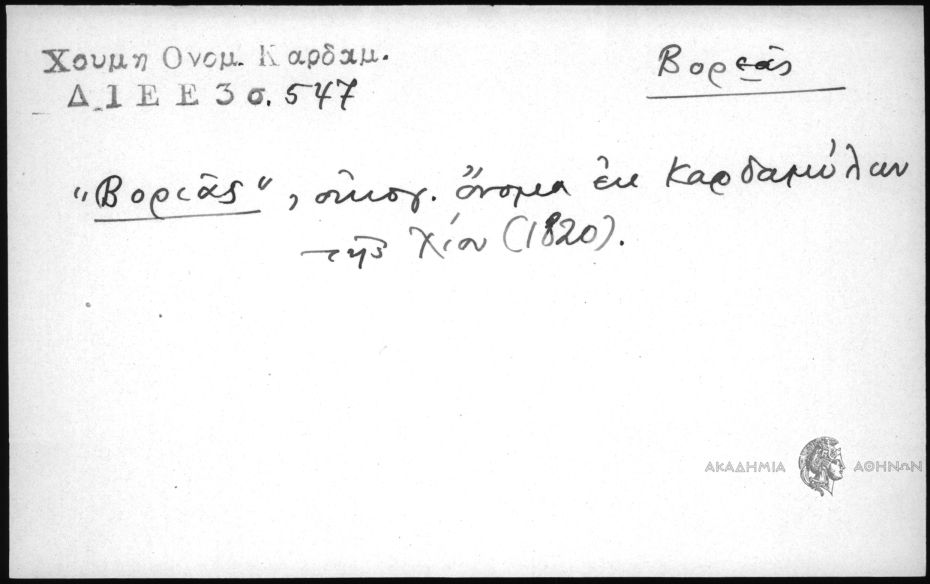 Χουμη Ονομ. Καρδαμ.
Δ Ι Ε Ε 3 σ. 547
Βορεᾶς
"Βοριᾶς", οἰκογ. ὄνομα ἐκ Καρδαμύλων
τῆς Χίου (1820).
ΑΚΑΔΗΜΙΑ ΑΘΗΝΩΝ